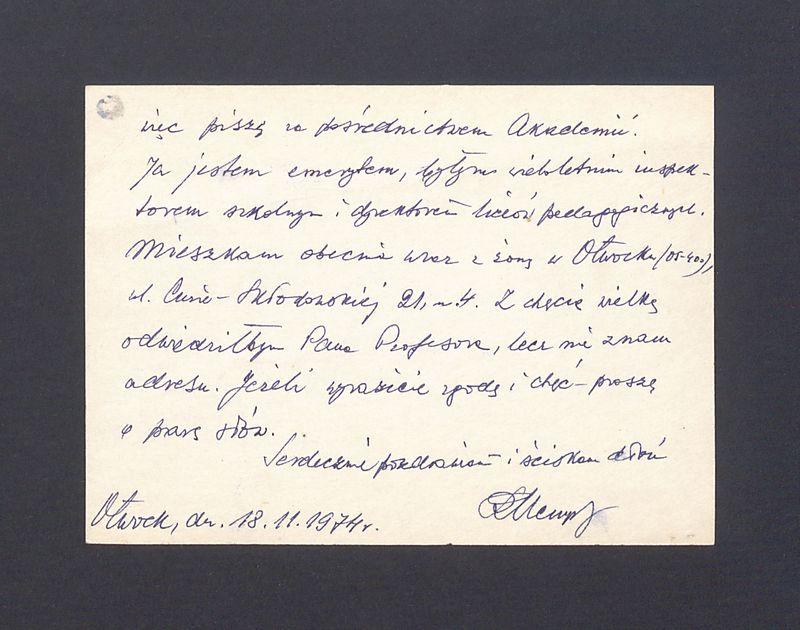 więc piszę za pośrednictwem Akademii.
Ja jestem emerytem, byłym wieloletnim inspek-
torem szkolnym i dyrektorem liceów pedagogicznych.
Mieszkam obecnie wraz z żoną w Otwocku (05-400),
ul. Curie-Skłodowskiej 21, m 4. Z chęcią wielką
odwiedziłbym Pana Profesora, lecz nie znam
adresu. Jeżeli wyrazicie zgodę i chęć - proszę
o parę słów.
Serdecznie pozdrawiam i ściskam dłoń
Otwock, dn. 18.11.1974 r.